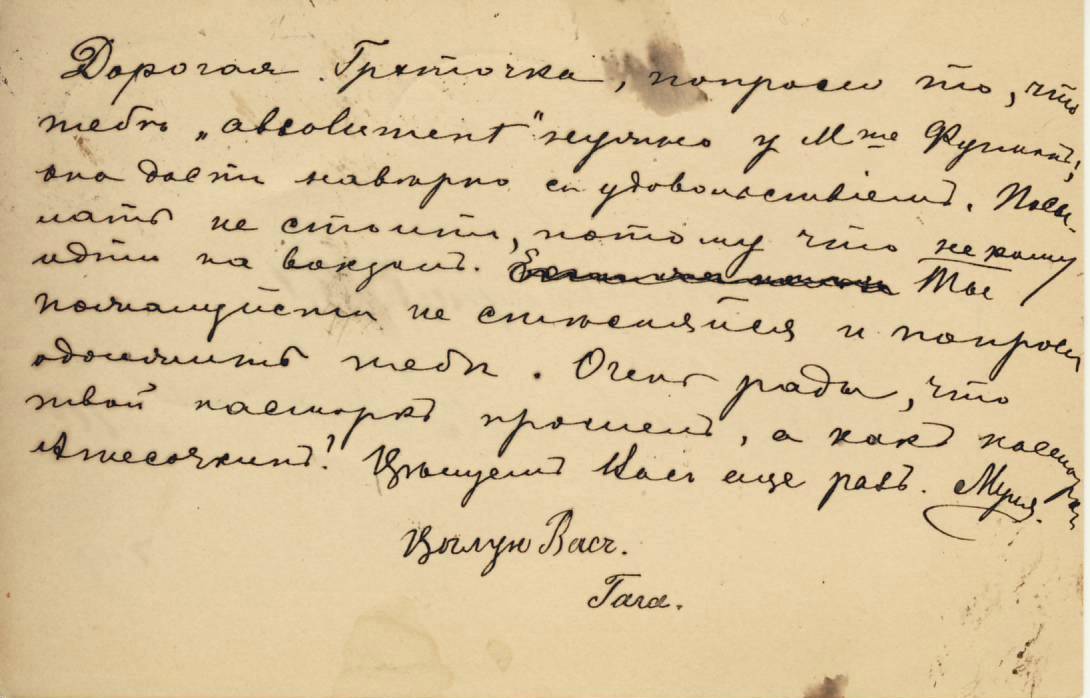 Дорогая Греточка, попроси то, что
тебѣ „absolument" нужно у Mme
она дастъ навѣрно съ удовольствіемъ. Посы-
лать не стоитъ, потому что некому
идти на вокзалъ. Ты
пожалуйста не стѣсняйся и попроси
одолжить тебѣ. Очень рады, что
твой насморкъ прошелъ, а какъ насморкъ
! Цѣлуемъ Васъ еще разъ. Муля.
Цѣлую Васъ.
Гага.